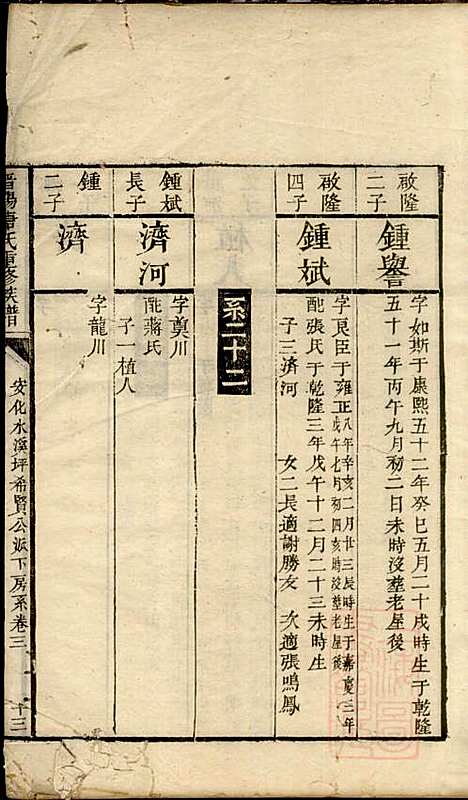 啟隆
二子
鍾譽
字如斯于康熙五十二年癸巳五月二十戌時生于乾隆
五十一年丙午九月初二日未時沒塟老屋後
啟隆
四子
鍾斌
字良臣于雍正八年辛亥二月廿三辰時生于嘉慶三年
戊午七月初四亥時沒塟老屋後
配張氏于乾隆三年戊午十二月二十三未時生
子三濟河 女二長適謝勝友 次適張鳴鳳
系二十二
鍾斌
長子
濟河
字奠川
配蔣氏
子一植人
鍾
二子
濟
字龍川
晉陽唐氏重修族譜
安化水溪坪希賢公派下房系卷三
十三